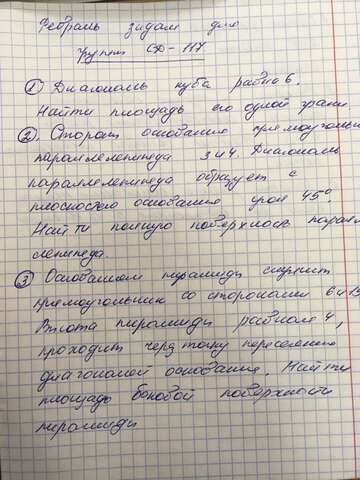 Февраль задам для
групп СД-117
① Диагональ куба равна 6.
Найти площадь его одной грани
② Стороны основания прямоугольн
параллелепипеда 3 и 4. Диагональ
параллелепипеда образует с
плоскостью основания угол 45°
Найти полную поверхность паралл
лепипеда.
③ Основанием пирамиды служит
прямоугольник со сторонами 6 и
Высота пирамиды равна 4,
проходит через точку пересечения
диагоналей основания. Найти
площадь боковой поверхности
пирамиды